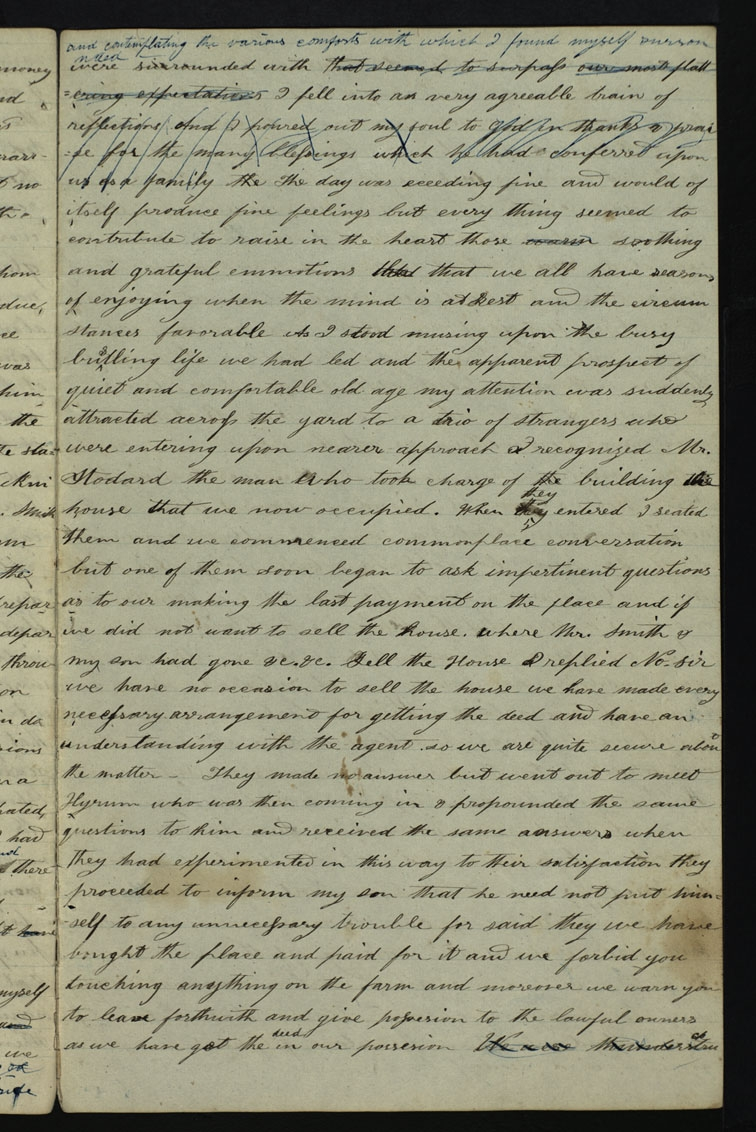 and contemplating the various comforts with which I found myself surroun
nded
were surrounded with that seemed to surpass our most flatt
=ering expectations I fell into an very agreeable train of
reflections and I poured out my soul to God in thanks & prai
=se for the many blessings which he had conferred upon
us as a family the The day was eceeding fine and would of
itself produce fine feelings but every thing seemed to
contribute to raise in the heart those warm soothing
and grateful emmotions that that we all have seasons
of enjoying when the mind is at rest and the circum
stances favorable As I stood musing upon the busy
bustling life we had led and the apparent prospect of
quiet and comfortable old age my attention was suddenly
attracted across the yard to a trio of strangers who
were entering upon nearer approach I recognized Mr.
Stodard the man who took charge of the building the
house that we now occupied. When they they entered I seated
them and we commenced commonplace conversation
but one of them soon began to ask impertinent questions
as to our making the last payment on the place and if
we did not want to sell the house. where Mr. Smith &
my son had gone &c. &c. Sell the House I replied No-sir
we have no occasion to sell the house we have made every
necessary arrangement for getting the deed and have an
understanding with the agent. so we are quite secure about
the matter — They made no answer but went out to meet
Hyrum who was then coming in & propounded the same
questions to him and received the same answers when
they had experimented in this way to their satisfaction they
proceeded to inform my son that he need not put him=
-self to any unnecessary trouble for said they we have
bought the place and paid for it and we forbid you
touching anything on the farm and moreover we warn you
to leave forthwith and give possesion to the lawful owners
as we have got the deed in our possesion We were thunderstruck